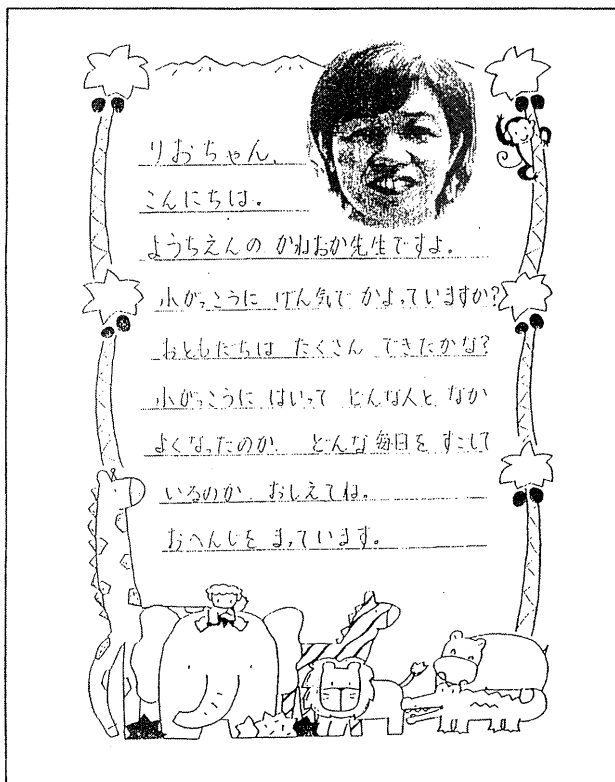 りおちゃん、
こんにちは。
ようちえんの かわおか先生ですよ。
小がっこうに げん気で かよっていますか?
おともだちは たくさん できたかな?
小がっこうに はいって どんな人と なか
よくなったのか、 どんな毎日を すごして
いるのか おしえてね。
おへんじを まっています。